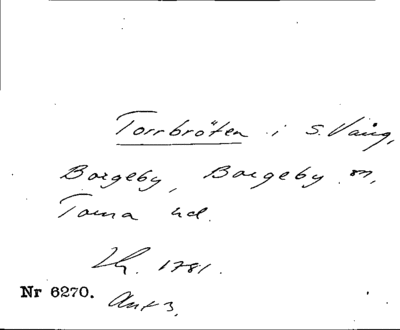 Torrbröten i S. Vång,
Borgeby, Borgeby sn,
Torna hd.
Lh. 1781.
Nr 6270.
Akt 3.